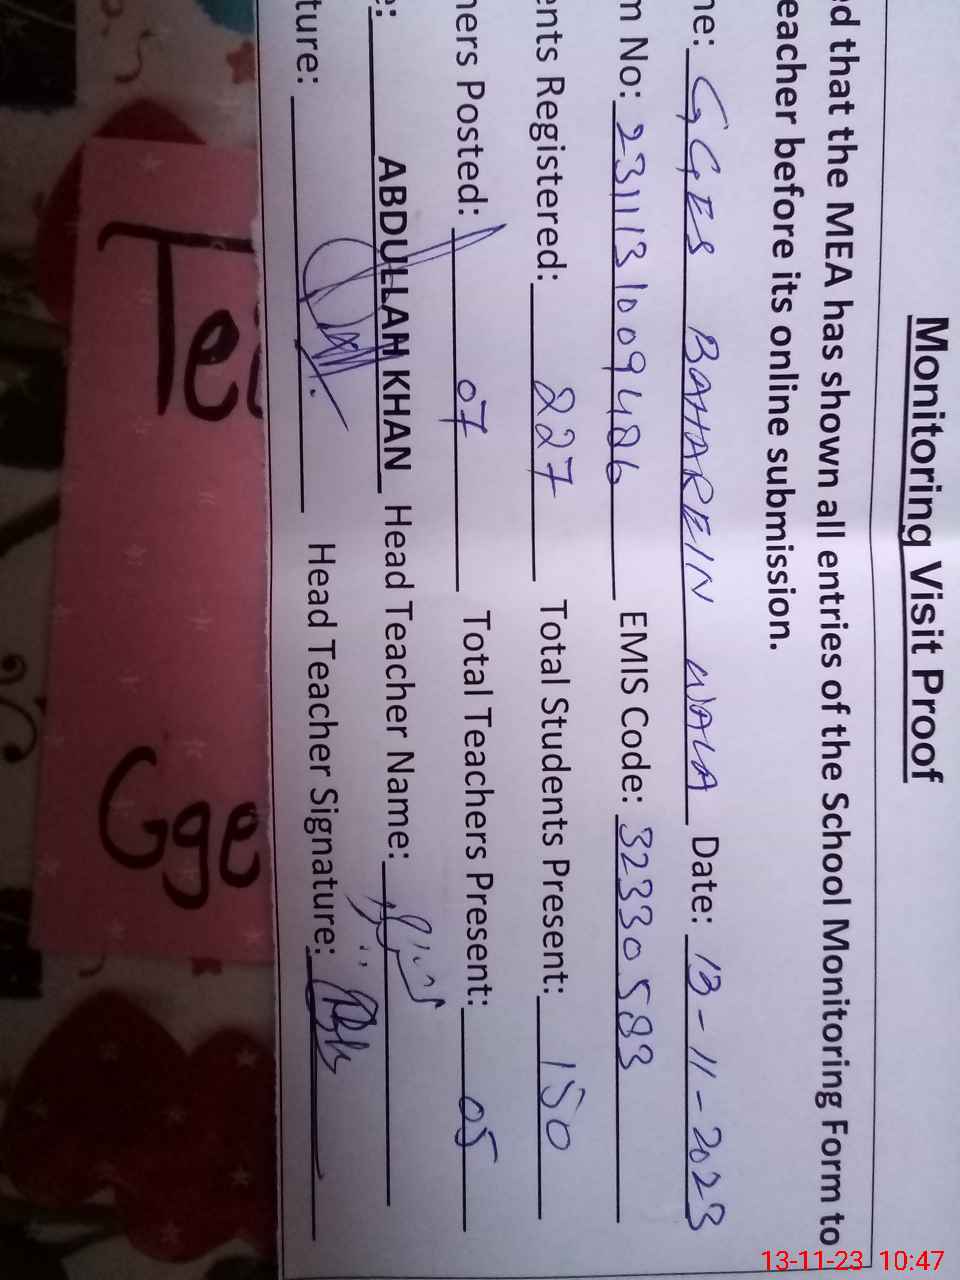 Monitoring Visit Proof
ed that the MEA has shown all entries of the School Monitoring Form to
eacher before its online submission.
ne: GGES BAHAREIN WALA Date: 13-11-2023
m No: 231113 1009486 EMIS Code: 32330583
ents Registered: 227 Total Students Present: 150
ners Posted: 07 Total Teachers Present: 05
e: ABDULLAH KHAN Head Teacher Name:
ture: Head Teacher Signature:
Te
Gge
13-11-23 10:47